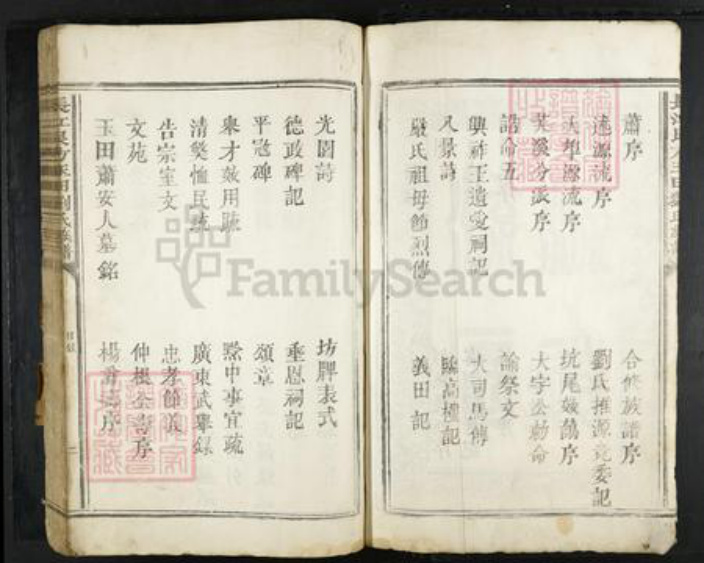 蕭序
合修族譜序
遠源流序
劉氏推源竟委記
大埠源流序
坑尾
序
芙溪分派序
大宇公勅命
誥命五
諭祭文
興祚王遺愛祠記
大司馬傳
八景詩
高樓記
嚴氏祖母節烈傳
義田記
光園詩
坊牌表式
德政碑記
垂恩祠記
平寇碑
頌章
舉才效用疏
黔中事宜疏
清獎恤民疏
廣東武舉錄
告宗室文
忠孝節義
文苑
仲根
壽序
玉田蕭安人墓銘
楊
壽序
目錄
二
FamilySearch